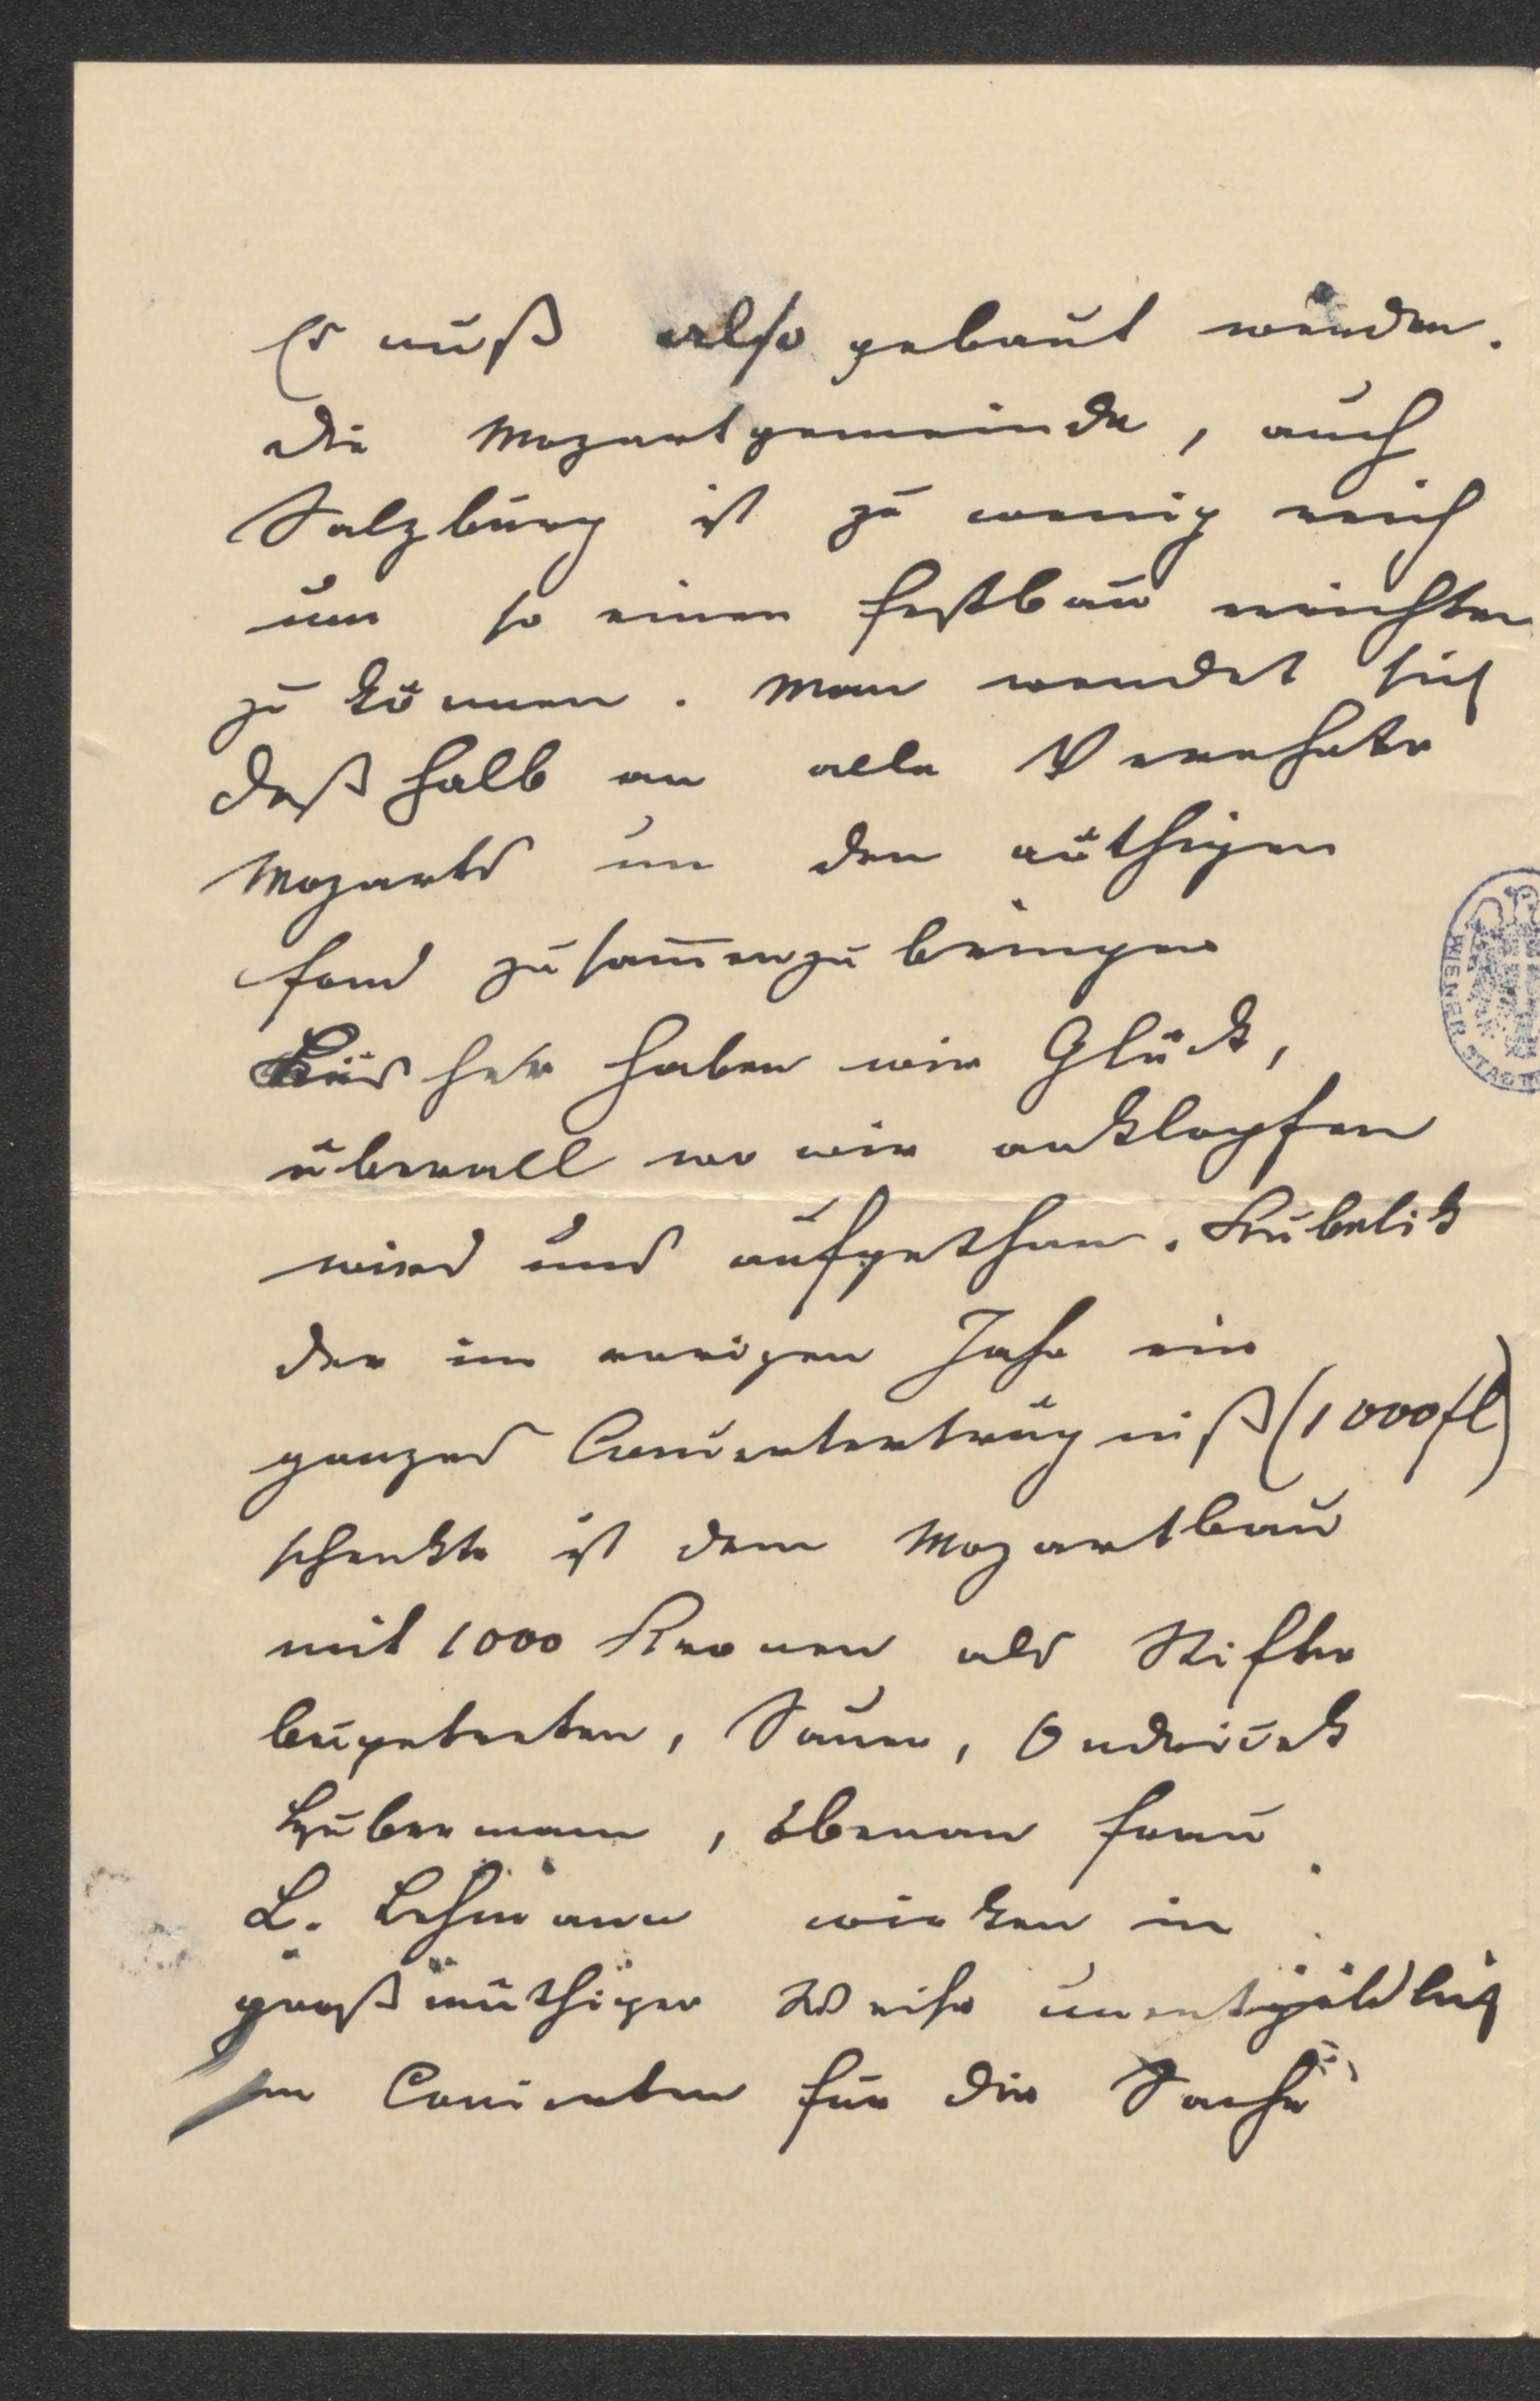 Es muß also gebaut werden.
die Mozartgemeinde, auch
Salzburg ist zu wenig reich
um so einen Festbau errichten
zu können. Man wendet sich
deßhalb an alle Verehrer
Mozarts um den nöthigen
Fond zusam̅enzubringen
Bisher haben wir Glück,
überall wo wir anklopfen
wird uns aufgethan. Kubelik
der im vorigen Jahr ein
ganzes Concerterträgniß (1000 fl)
schenkte ist dem Mozartbau
mit 1000 Kronen als Stifter
beigetreten, Sauer, Ondricek
Hubermann, obenan Frau
L. Lehmann wirken in
großmüthiger Weise unentgeldlich
in Concerten für die Sache
WIENER STADT